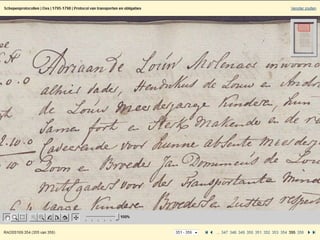 Schepenprotocollen | Oss | 1795-1798 | Protocol van transporten en obligaties
Venster sluiten
Adriaan de Louw Molenaar inwoond
alhier lade, Hendrikus de Louw en Andri
de Louw Meerderjarige kindere, hun
Samen fort en Sterk Makende en de re
Caveerende voor hunne absente Meerderja
Zoon en Broeder Jan Dominicus de Louw
Mitsgaders voor des Transportants Mind
Jarige kindere Broeders en Zusters respect
100%
RAOSS109.354 (355 van 356)
351 - 356
... 347 348 349 350 351 352 353 354 355 356